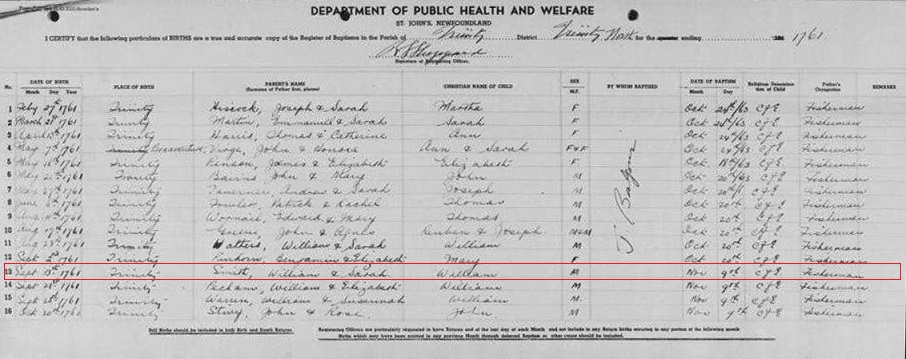 DEPARTMENT OF PUBLIC HEALTH AND WELFARE
ST. JOHN'S, NEWFOUNDLAND
I CERTIFY that the following particulars of BIRTHS are a true and accurate copy of the Register of Baptisms in the Parish of Trinity District Trinity North for the quarter ending 1761
Signature of Registering Officer.
DATE OF BIRTH PLACE OF BIRTH PARENT'S NAME CHRISTIAN NAME OF CHILD SEX BY WHOM BAPTIZED DATE OF BAPTISM Religious Denomination of Child Father's Occupation REMARKS
Month Day Year (Surname of Father first, please) M.F. Month Day Year
1 Feby 27th 1761 Trinity Hiscock, Joseph & Sarah Martha F Oct C of E Fisherman
2 March 21st 1761 Trinity Martin, Emmanuel & Sarah Sarah F Oct C of E Fisherman
3 April 1761 Trinity Harris, Thomas & Catherine Ann F Oct C of E Fisherman
4 May 7th 1761 John & Honora Ann & Sarah F&F Oct C of E Fisherman
5 May 1761 Trinity James & Elizabeth Elizabeth F Oct C of E Fisherman
6 May 1761 Trinity John & Mary John M Oct C of E Fisherman
7 May 27th 1761 Trinity Taverner, Andrew & Sarah Joseph M Oct C of E Fisherman
8 June 1761 Trinity Fowler, Patrick & Rachel Thomas M Oct 20th C of E Fisherman
9 Aug 1761 Trinity Edward & Mary Thomas M Oct 20th C of E Fisherman
10 Aug 17th 1761 Trinity Greene, John & Agnes Reuben & Joseph M&M Oct 20th C of E Fisherman
11 Aug 1761 Trinity Watters, William & Sarah William M Oct 20th C of E Fisherman
12 Sept 1761 Trinity Pinhorn, Benjamin & Elizabeth Mary F Oct 20th C of E Fisherman
13 Sept 1761 Trinity Smith, William & Sarah William M Nov 9th C of E Fisherman
14 Sept 1761 Trinity William & Elizabeth William M Nov 9th C of E Fisherman
15 Sept 1761 Trinity Warren, William & Susannah William M Nov 9th C of E Fisherman
16 Oct 1761 Trinity John & Rose John M Nov 9th C of E Fisherman
J. Balfour
Still Births should be included in both Birth and Death Returns.
Registering Officers are particularly requested to have Returns end at the last day of each Month and not include in any Return births occurring in any portion of the following month
Births which may have been omitted in any previous Month through deferred Baptism or other cause should be included.